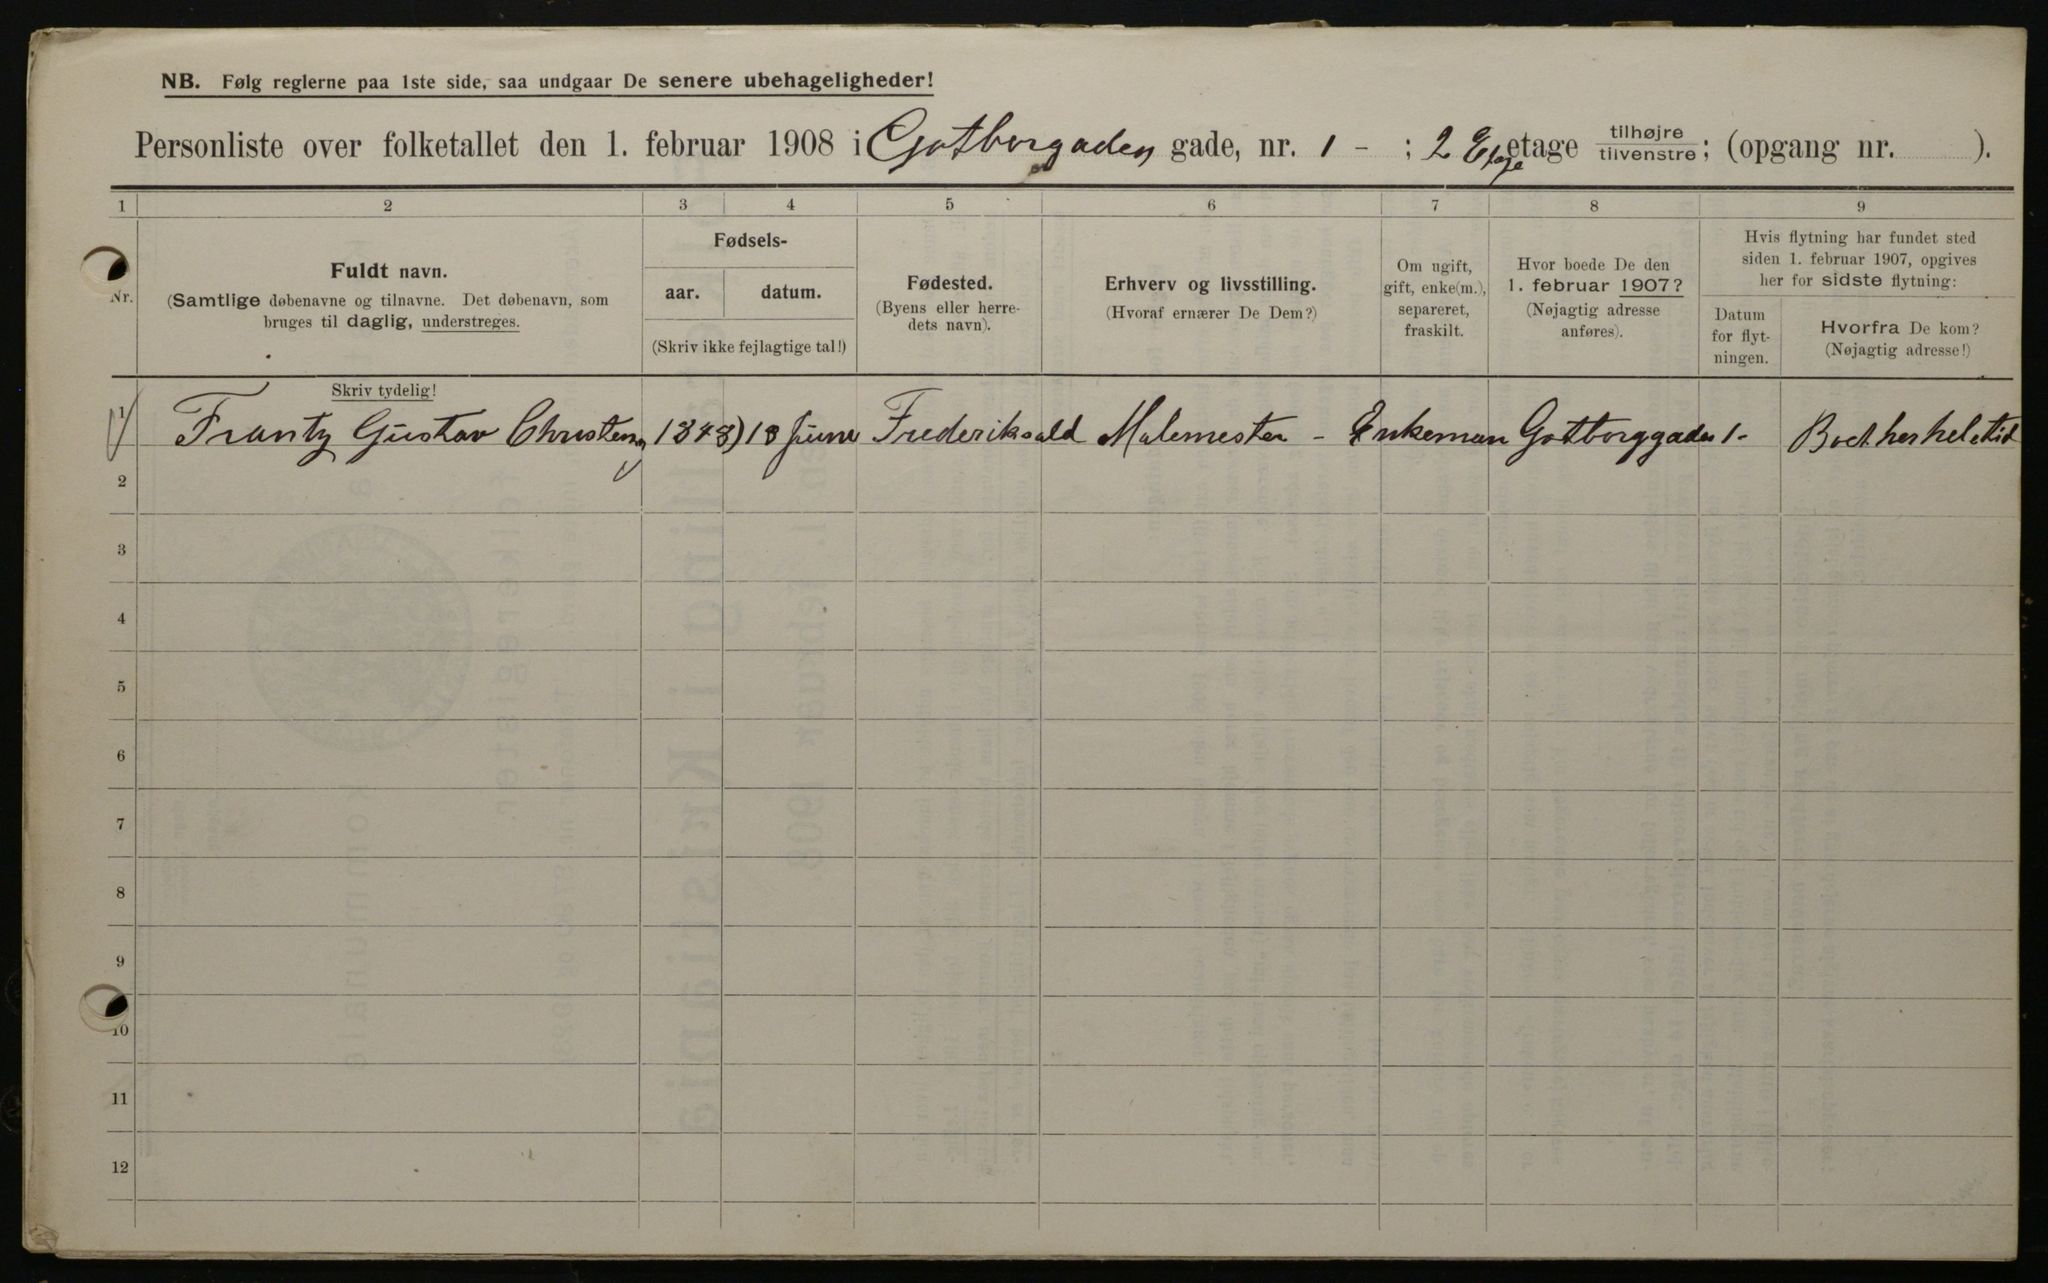 NB. Følg reglerne paa 1ste side, saa undgaar De senere ubehageligheder!
Personliste over folketallet den 1. februar 1908 i Gotborgaden gade, nr. 1 - ; 2 Etage etage tilhøjre tilvenstre; (opgang nr. ).
1 2 3 4 5 6 7 8 9
Nr.
Fuldt navn.
(Samtlige døbenavne og tilnavne. Det døbenavn, som
bruges til daglig, understreges.
Skriv tydelig!
Fødsels-
aar. datum.
(Skriv ikke fejlagtige tal!)
Fødested.
(Byens eller herre-
dets navn).
Erhverv og livsstilling.
(Hvoraf ernærer De Dem?)
Om ugift,
gift, enke(m.),
separeret,
fraskilt.
Hvor boede De den
1. februar 1907?
(Nøjagtig adresse
anføres).
Hvis flytning har fundet sted
siden 1. februar 1907, opgives
her for sidste flytning:
Datum
for flyt-
ningen.
Hvorfra De kom?
(Nøjagtig adresse!)
1 Frantz Gustav Christensen 1843 18 June Fredriksald Malemester - Enkeman Gotborggaden 1- Boet her hele tid
2
3
4
5
6
7
8
9
10
11
12